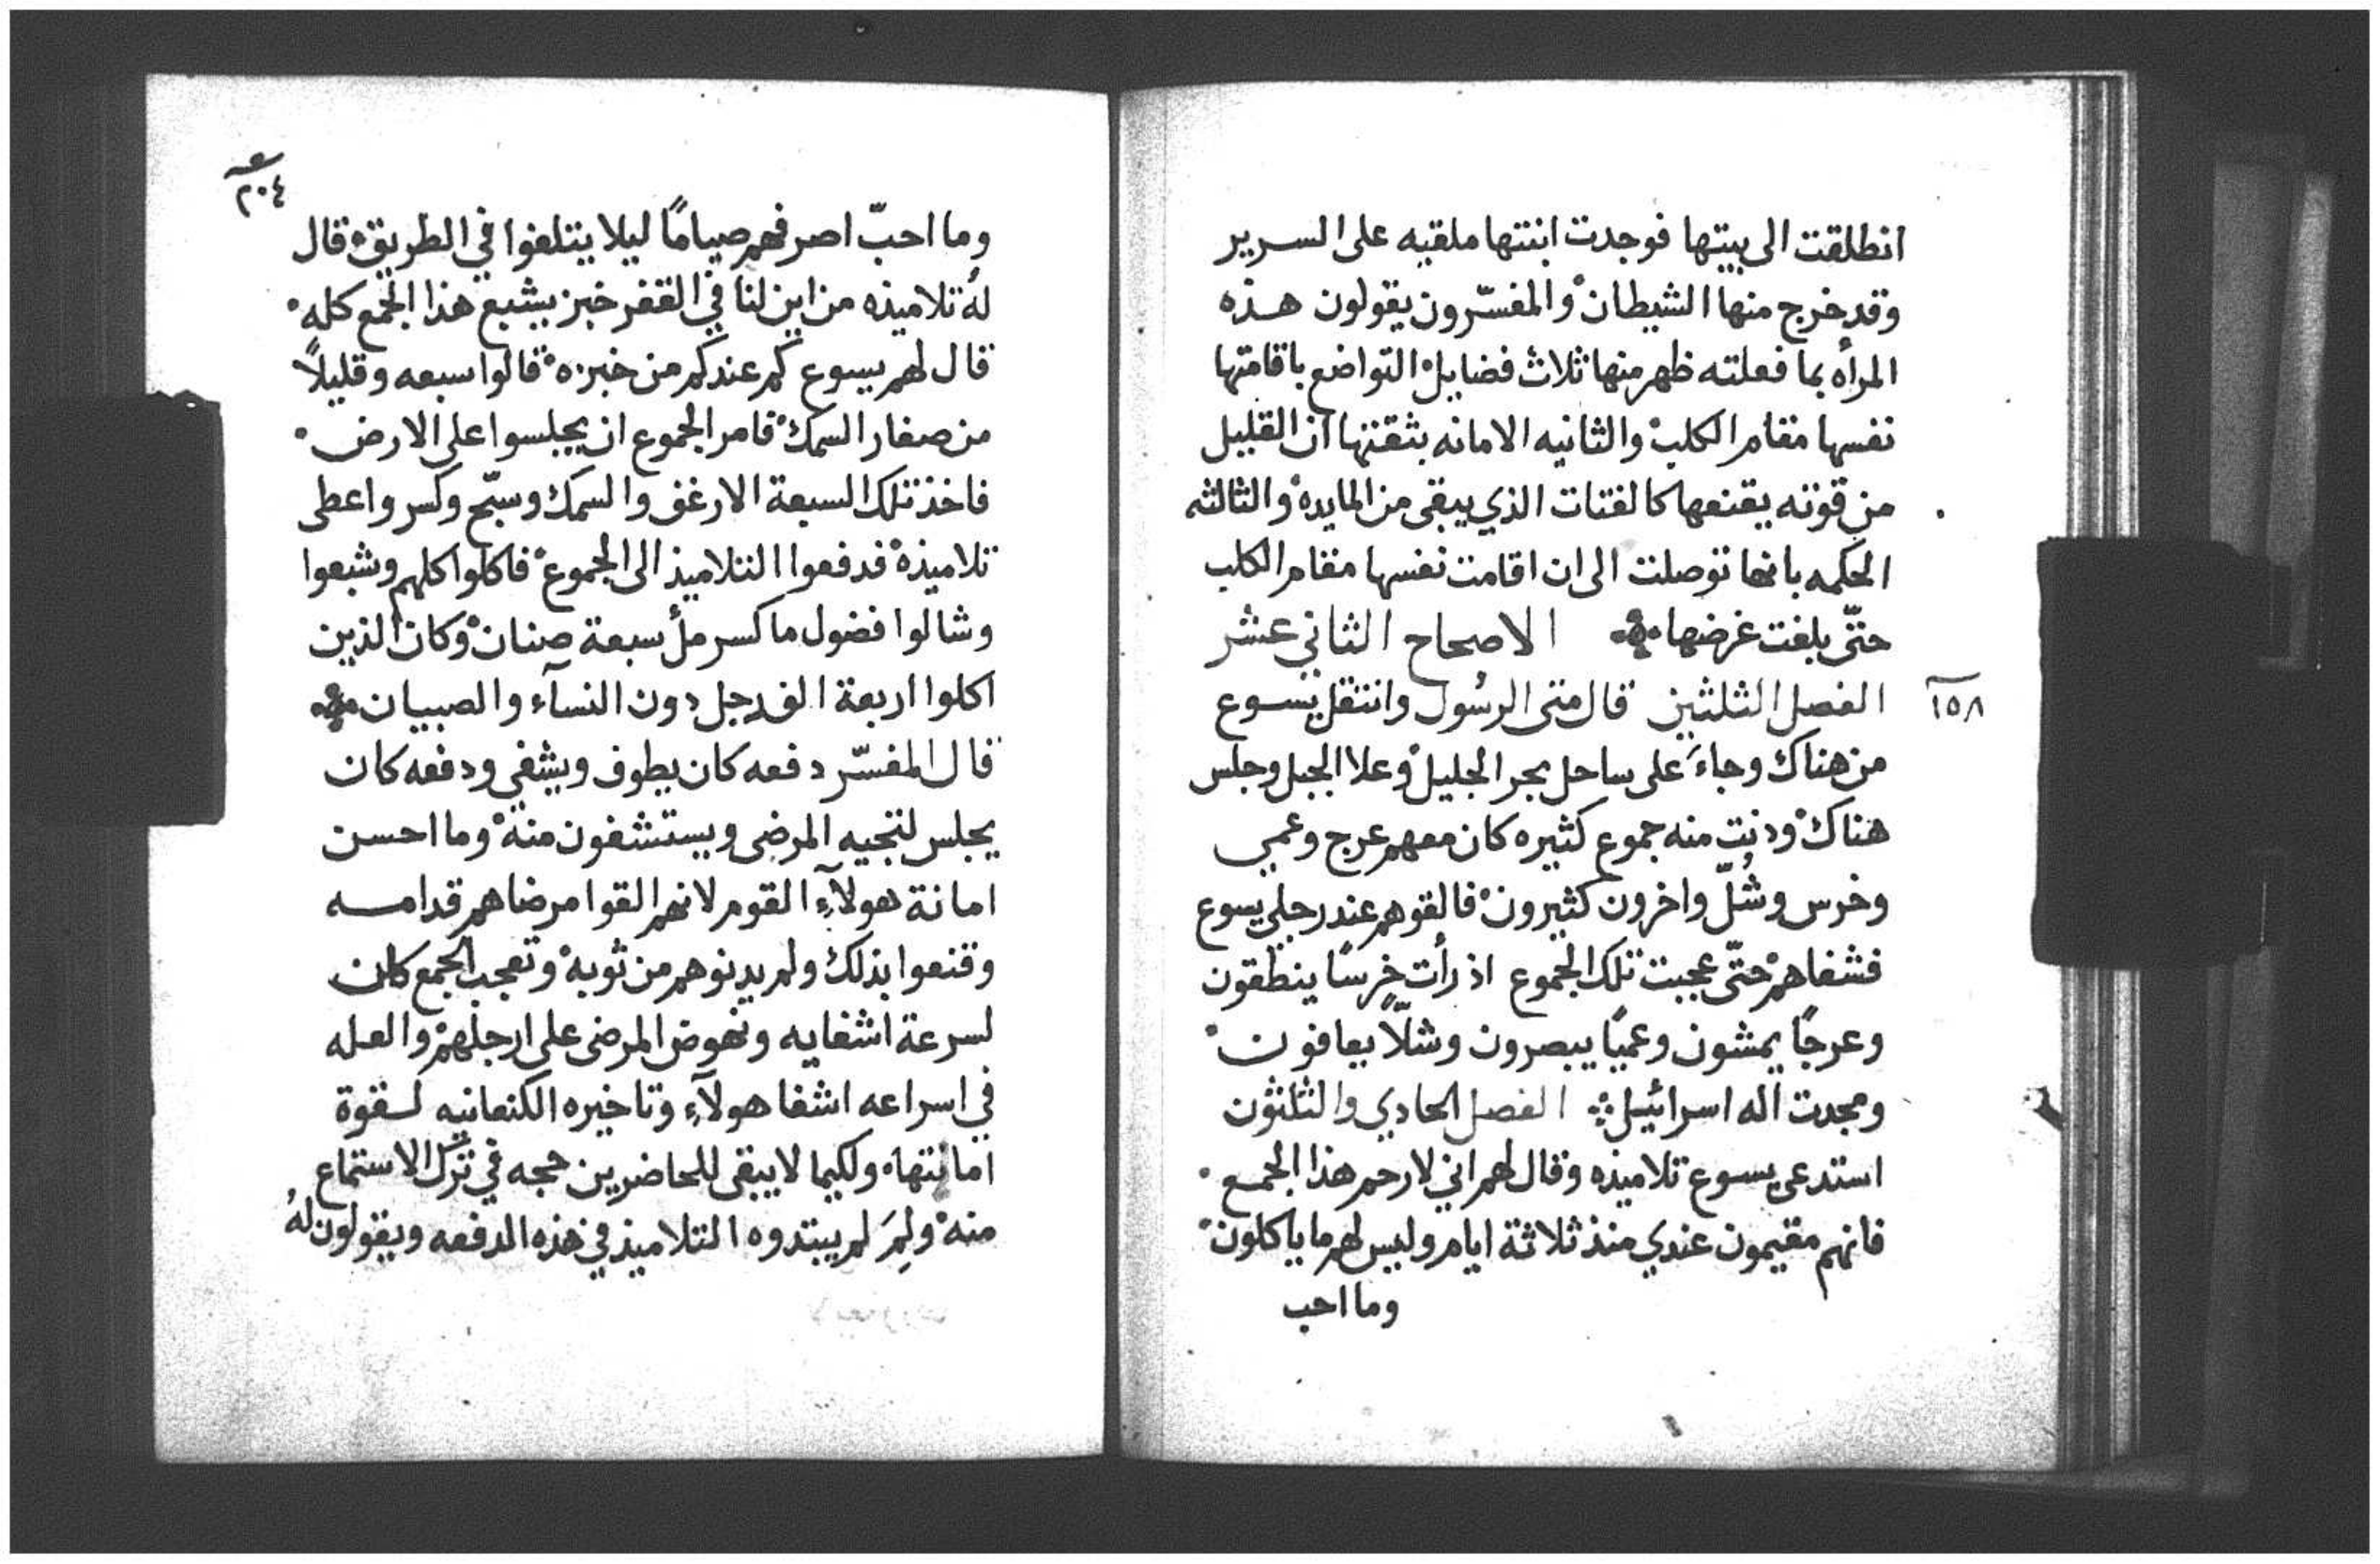 انطلقت الى بيتها فوجدت ابنتها ملقيه على السرير
وقد خرج منها الشيطان والمفسّرون يقولون هذه
المرأه بما فعلته ظهر منها ثلاث فضايل التواضع باقامتها
نفسها مقام الكلب والثانيه الامانه بثقتها ان القليل
من قوته يقنعها كالفتات الذي يبقى من المايده والثالثه
الحكمه بانها توصلت الى ان اقامت نفسها مقام الكلب
حتّى بلغت غرضها الاصحاح الثاني عشر
١٥٨
الفصل الثلثين قال متى الرسُول وانتقل يسوع
من هناك وجاءَ على ساحل بحر الجليل وعلا الجبل وجلس
هناك ودنت منه جموع كثيره كان معهم عرج وعمي
وخرس وشُلّ واخرون كثيرون فالقوهم عند رجلي يسوع
فشفاهم حتّى عجبت تلك الجموع اذ رأت خرسًا ينطقون
وعرجًا يمشون وعميًا يبصرون وشلّاً يعافون
ومجدت اله اسرائيل الفصل الحادي والثلثون
استدعى يسوع تلاميذه وقال لهم اني لارحم هذا الجمع
فانهم مقيمون عندي منذ ثلاثة ايام وليس لهم ما ياكلون
وما احب
٢٠٤
وما احبّ اصرفهم صيامًا ليلا يتلفوا في الطريق قال
لهُ تلاميذه من اين لنا في القفر خبز يشبع هذا الجمع كله
قال لهم يسوع كم عندكم من خبزه قالوا سبعه وقليلاً
من صغار السمك فامر الجموع ان يجلسوا على الارض
فاخذ تلك السبعة الارغف والسمك وسبّح وكسر واعطى
تلاميذه فدفعوا التلاميذ الى الجموع فاكلوا كلهم وشبعوا
وشالوا فضول ما كسر ملأ سبعة صنان وكان الذين
اكلوا اربعة الف رجل دون النسآء والصبيان
قال المفسّر دفعه كان يطوف ويشفي ودفعه كان
يجلس لتجيه المرضى ويستشفون منه وما احسن
امانة هولآءِ القوم لانهم القوا مرضاهم قدامه
وقنعوا بذلك ولم يدنوهم من ثوبه وتعجب الجمع كان
لسرعة اشفايه ونهوض المرضى على ارجلهم والعله
في اسراعه اشفا هولآءِ وتاخيره الكنعانيه لقوة
امانتها ولكيما لا يبقى للحاضرين حجه في ترك الاستماع
منه ولِمَ لم يبتدوه التلاميذ في هذه الدفعه ويقولون لهُ